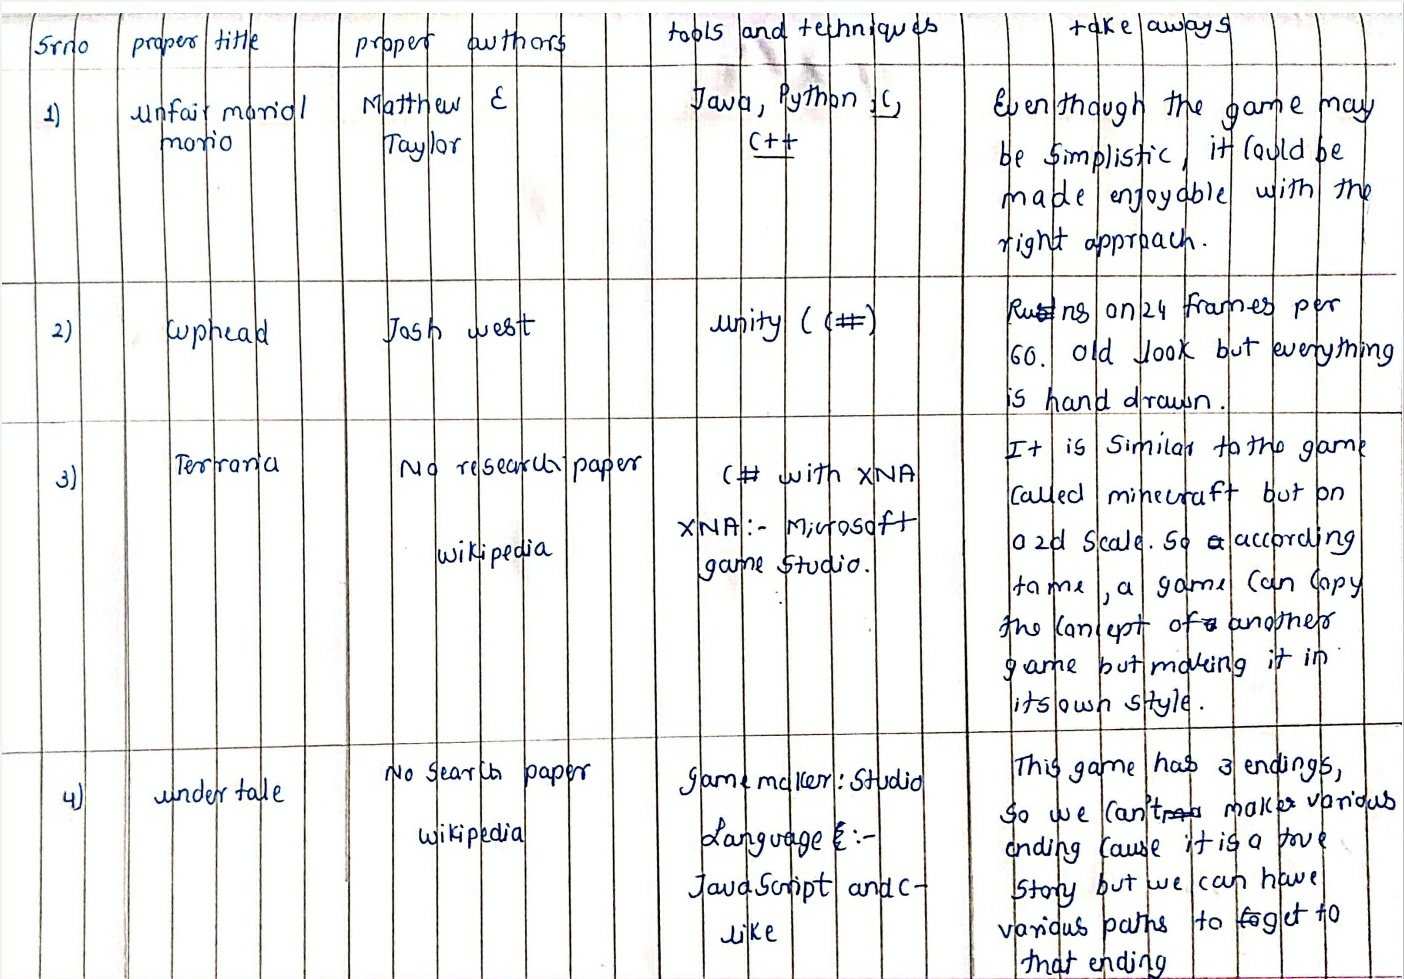 Srno proper title proper authors tools and techniques take aways
1) Unfair mariol mario Matthew & Taylor Java, Python, C, C++ Even though the game may
be simplistic, it could be
made enjoyable with the
right approach.
2) Cuphead Josh west unity (C#) on 24 frames per
60. old look but everything
is hand drawn.
3) Terraria No research paper
wikipedia
C# with XNA
XNA:- Microsoft
game Studio.
It is Similar to the game
called minecraft but on
a 2d Scale. So according
to me, a game can copy
the concept of another
game but making it in
its own style.
4) under tale No Search paper
wikipedia
game maker: Studio
Language :-
JavaScript and C-
like
This game has 3 endings,
So we can't make various
ending cause it is a true
Story but we can have
various paths to get to
that ending